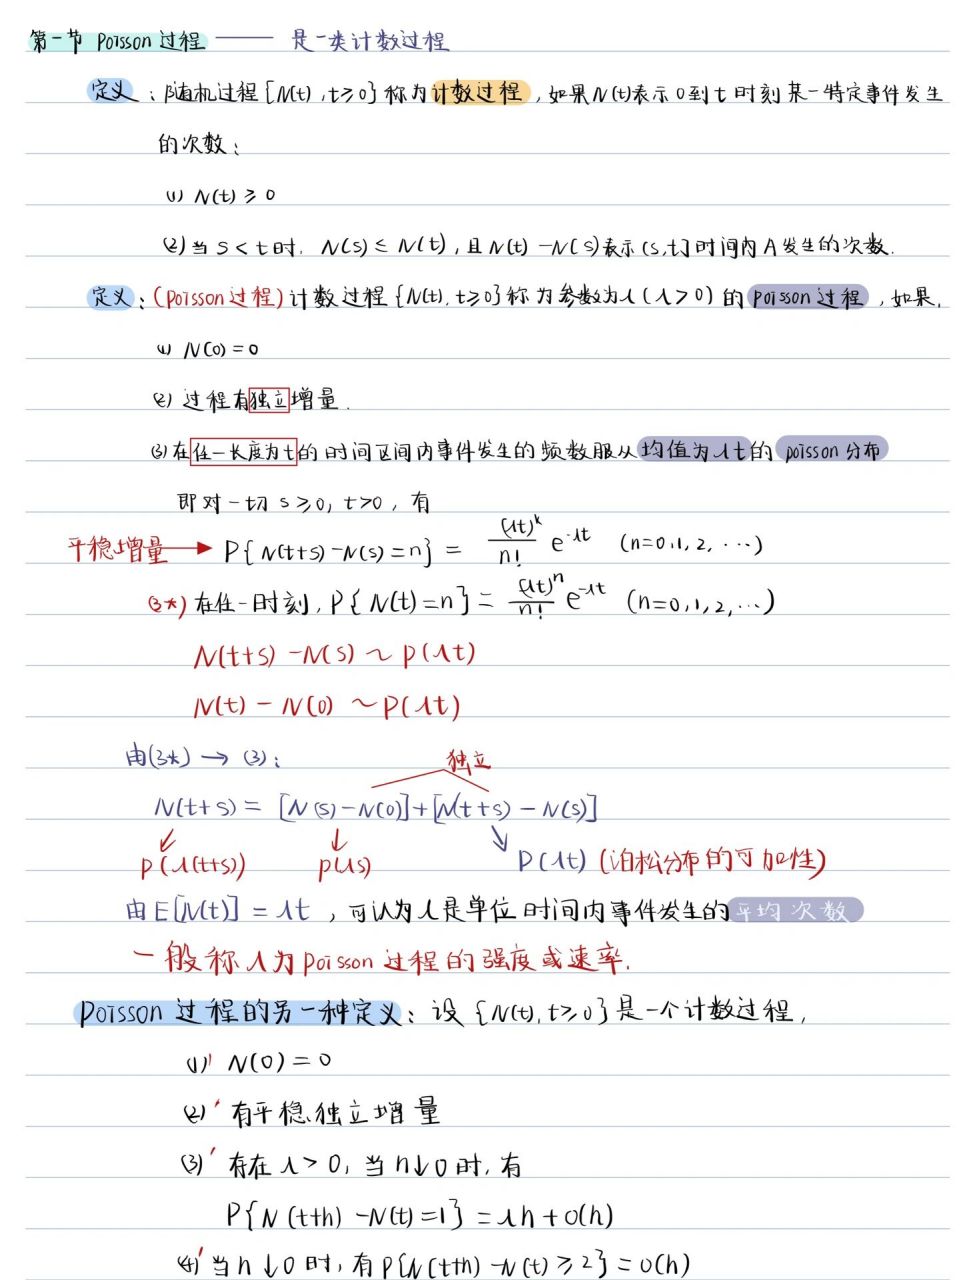 第一节 Poisson 过程 —— 是一类计数过程
定义：随机过程{N(t), t≥0}称为计数过程，如果N(t)表示0到t时刻某一特定事件发生
的次数；
(1) N(t) ≥ 0
(2) 当 s < t 时，N(s) ≤ N(t)，且 N(t) - N(s)表示(s,t]时间内A发生的次数.
定义：(Poisson过程) 计数过程{N(t), t≥0}称为参数为λ(λ>0)的Poisson过程，如果.
(1) N(0) = 0
(2) 过程有独立增量.
(3) 在任一长度为t的时间区间内事件发生的频数服从均值为λt的 poisson分布
即对一切 s≥0, t>0, 有
平稳增量 → P{N(t+s) - N(s) = n} = (λt)^k / n! e^-λt (n=0,1,2,⋯)
(3*) 在任一时刻, P{N(t) = n} = (λt)^n / n! e^-λt (n=0,1,2,⋯)
N(t+s) - N(s) ~ P(λt)
N(t) - N(0) ~ P(λt)
由(3*) → (3)：
独立
N(t+s) = [N(s) - N(0)] + [N(t+s) - N(s)]
P(λ(t+s)) P(λs) P(λt) (泊松分布的可加性)
由 E[N(t)] = λt，可认为λ是单位时间内事件发生的平均次数
一般称λ为Poisson过程的强度或速率.
Poisson 过程的另一种定义：设{N(t), t≥0}是一个计数过程,
(1)' N(0) = 0
(2)' 有平稳独立增量
(3)' 存在 λ > 0, 当 h↓0 时, 有
P{N(t+h) - N(t) = 1} = λh + o(h)
(4)' 当 h↓0 时, 有 P{N(t+h) - N(t) ≥ 2} = o(h)